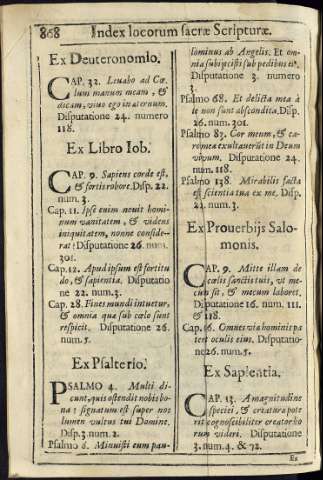 868 Index locorum sacræ Scripturæ.
Ex Deuteronomio.
CAP. 32. Leuabo ad Cœ-
lum manum meam, &
dicam, viuo ego in æternum.
Disputatione 24. numero
118.
Ex Libro Iob.
CAP. 9. Sapiens corde est,
& fortis robore. Disp. 22.
num. 3.
Cap. 11. Ipse enim nouit homi-
num vanitatem, & videns
iniquitatem, nonne conside-
rat? Disputatione 26. num.
301.
Cap. 12. Apud ipsum est fortitu
do, & sapientia. Disputatio
ne 22. num. 3.
Cap. 28. Fines mundi intuetur,
& omnia quæ sub cœlo sunt
respicit. Disputatione 26.
num. 5.
Ex Psalterio.
PSALMO 4. Multi di-
cunt, quis ostendit nobis bo-
na? signatum est super nos
lumen vultus tui Domine.
Disp. 3. num. 2.
Psalmo 8. Minuisti eum pau-
lominus ab Angelis. Et om-
nia subiecisti sub pedibus
Disputatione 3. numero
3.
Psalmo 68. Et delicta mea à
te non sunt abscondita. Disp.
26. num. 301.
Psalmo 83. Cor meum, & ca-
ro mea exultauerūt in Deum
viuum. Disputatione 24.
num. 118.
Psalmo 138. Mirabilis facta
est scientia tua ex me. Disp.
22. num. 3.
Ex Prouerbijs Salo-
monis.
CAP. 9. Mitte illam de
cœlis sanctis tuis, vt me-
cum sit, & mecum laboret.
Disputatione 16. num. 111.
& 118.
Cap. 16. Omnes via hominis pa
tent oculis eius. Disputatio-
ne 26. num. 5.
Ex Sapientia.
CAP. 13. A magnitudine
speciei, & creaturæ pote
rit cognoscibiliter creator ho
rum videri. Disputatione
3. num. 4. & 72.
Ex